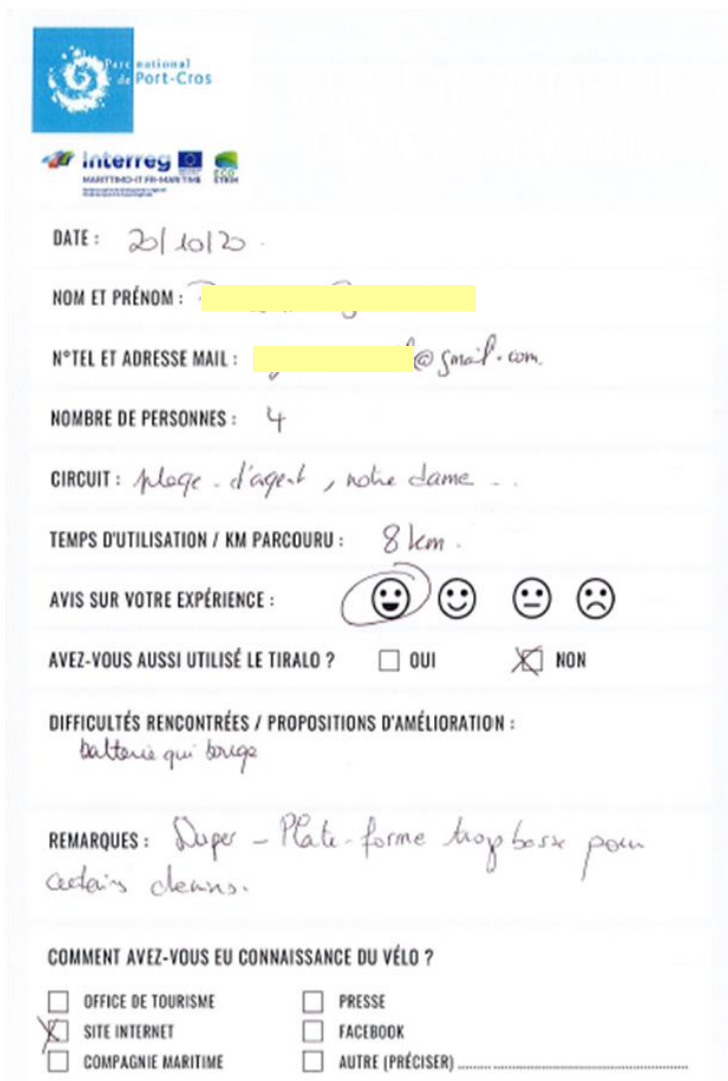 Parc national
de Port-Cros
Interreg
MARITTIMO-IT FR-MARITIME
ECO
STRIM
DATE : 20/10/20.
NOM ET PRÉNOM :
N°TEL ET ADRESSE MAIL : @gmail.com.
NOMBRE DE PERSONNES : 4
CIRCUIT : plage - d'argent, notre dame - .
TEMPS D'UTILISATION / KM PARCOURU : 8 km.
AVIS SUR VOTRE EXPÉRIENCE :
AVEZ-VOUS AUSSI UTILISÉ LE TIRALO ? OUI NON
DIFFICULTÉS RENCONTRÉES / PROPOSITIONS D'AMÉLIORATION :
batterie qui bouge
REMARQUES : Super - Plate-forme trop basse pour
certains chemins.
COMMENT AVEZ-VOUS EU CONNAISSANCE DU VÉLO ?
OFFICE DE TOURISME PRESSE
SITE INTERNET FACEBOOK
COMPAGNIE MARITIME AUTRE (PRÉCISER)